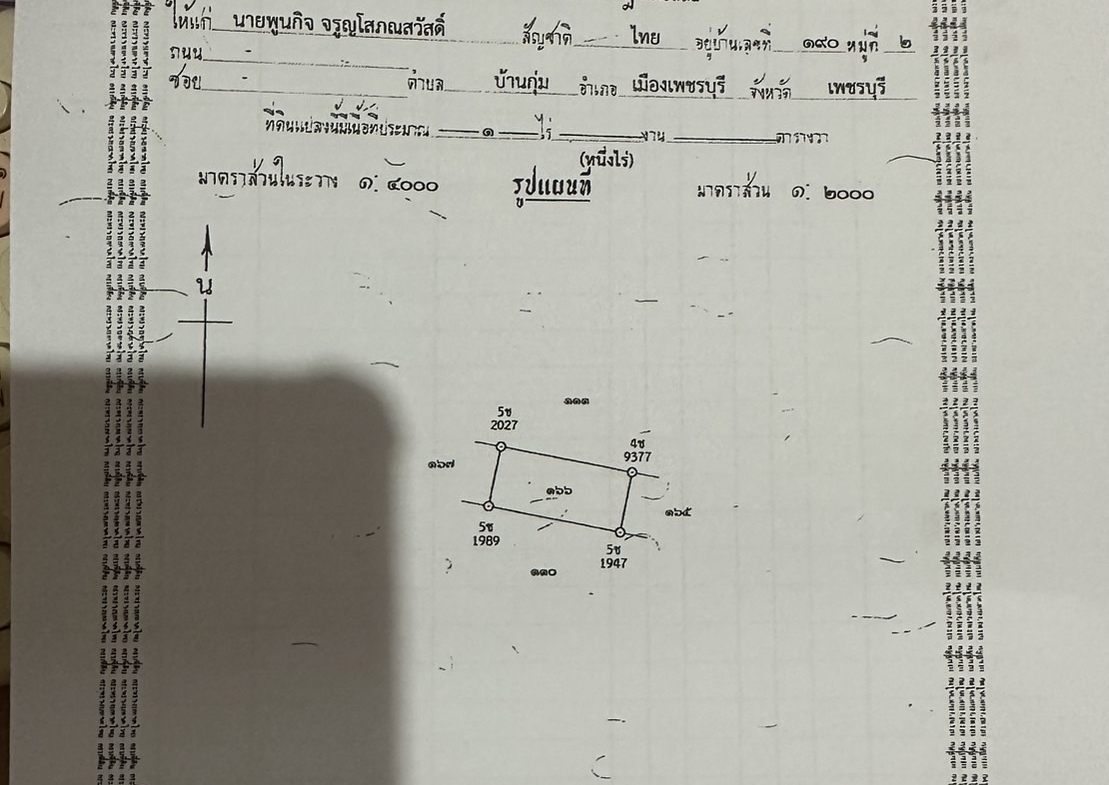 ให้แก่ นายพูนกิจ จรูญโสภณสวัสดิ์ สัญชาติ ไทย อยู่บ้านเลขที่ ๑๙๐ หมู่ที่ ๒
ถนน -
ซอย - ตำบล บ้านกุ่ม อำเภอ เมืองเพชรบุรี จังหวัด เพชรบุรี
ที่ดินแปลงนี้มีเนื้อที่ประมาณ ๑ ไร่ งาน ตารางวา
(หนึ่งไร่)
มาตราส่วนในระวาง ๑: ๔๐๐๐ รูปแผนที่ มาตราส่วน ๑: ๒๐๐๐
น
๑๑๑
5ซ
2027
4ซ
9377
๑๖๗
๑๖๖
๑๖๕
5ซ
1989
5ซ
1947
๑๑๐